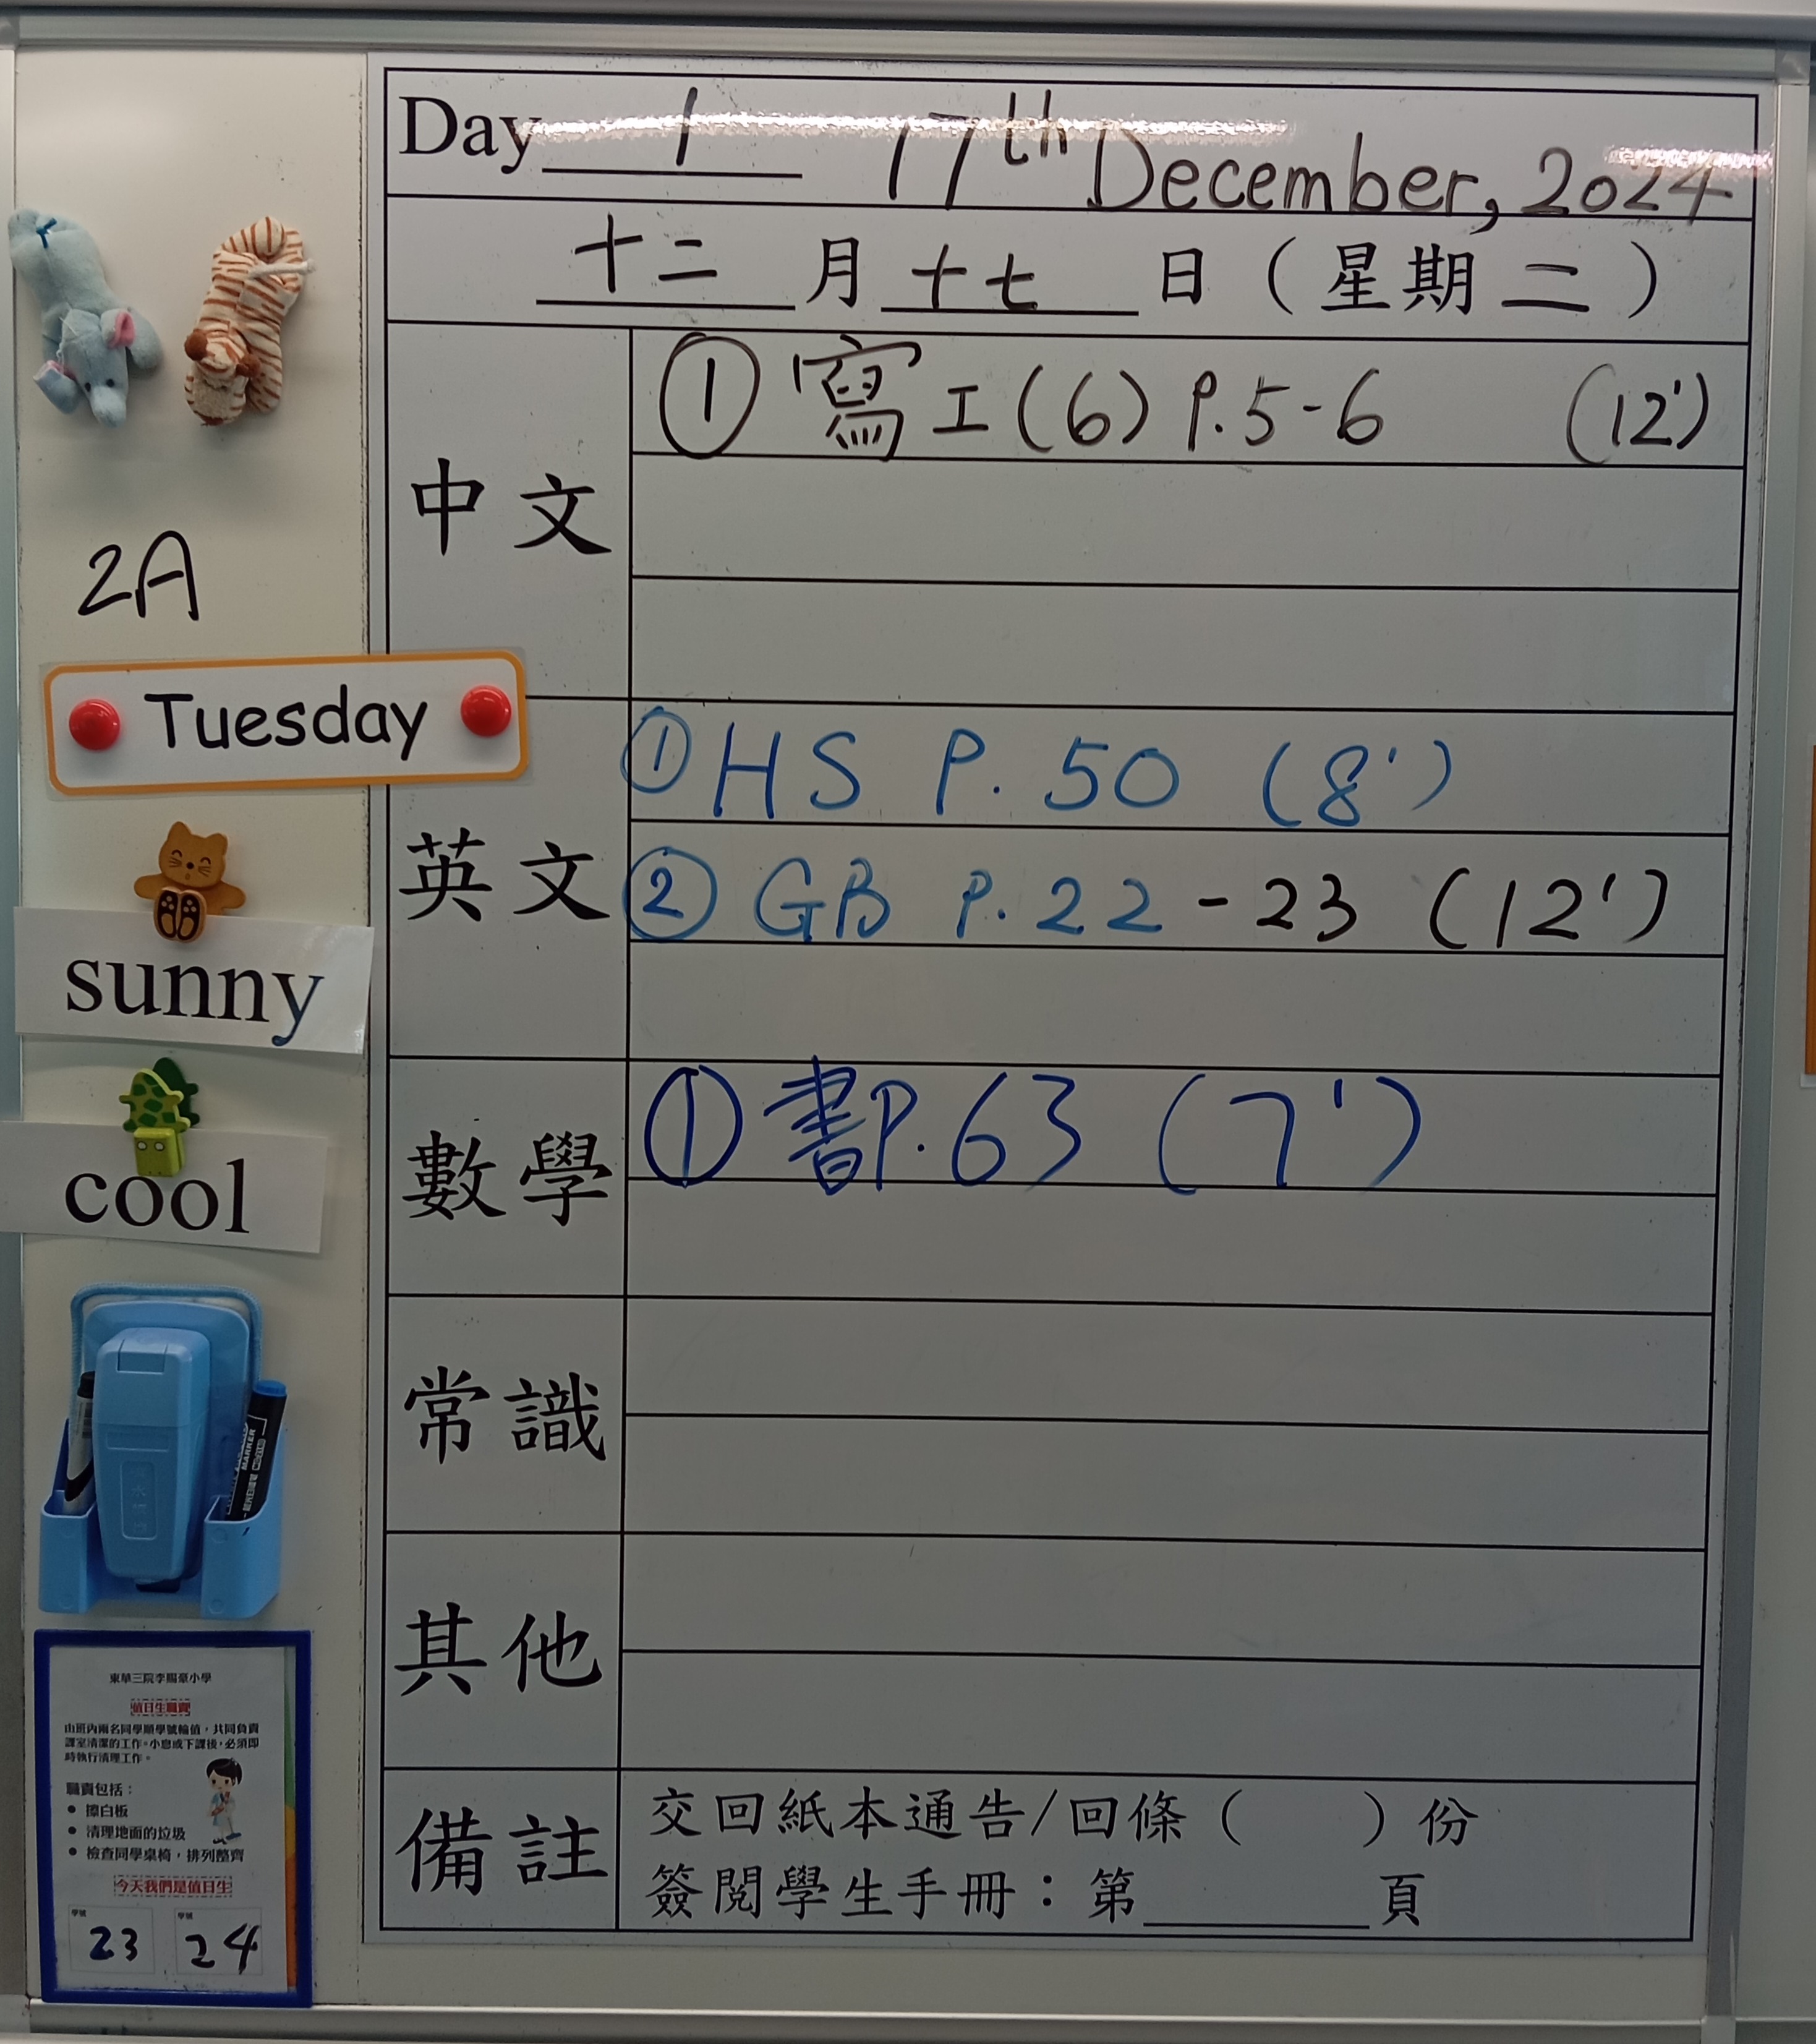 Day 1 17th December, 2024
十二 月 十七 日（星期二）
中文
① 寫工(6) P.5-6 (12')
英文
① HS P.50 (8')
② GB P.22-23 (12')
數學
① 書P.63 (7')
常識
其他
備註
交回紙本通告/回條（ ）份
簽閱學生手冊：第______頁
2A
Tuesday
sunny
cool
MARKER
東華三院李賜豪小學
值日生職責
由班內兩名同學順學號輪值，共同負責
課室清潔的工作。小息或下課後，必須即
時執行清理工作。
職責包括：
● 擦白板
● 清理地面的垃圾
● 檢查同學桌椅，排列整齊
今天我們是值日生
學號 學號
23 24